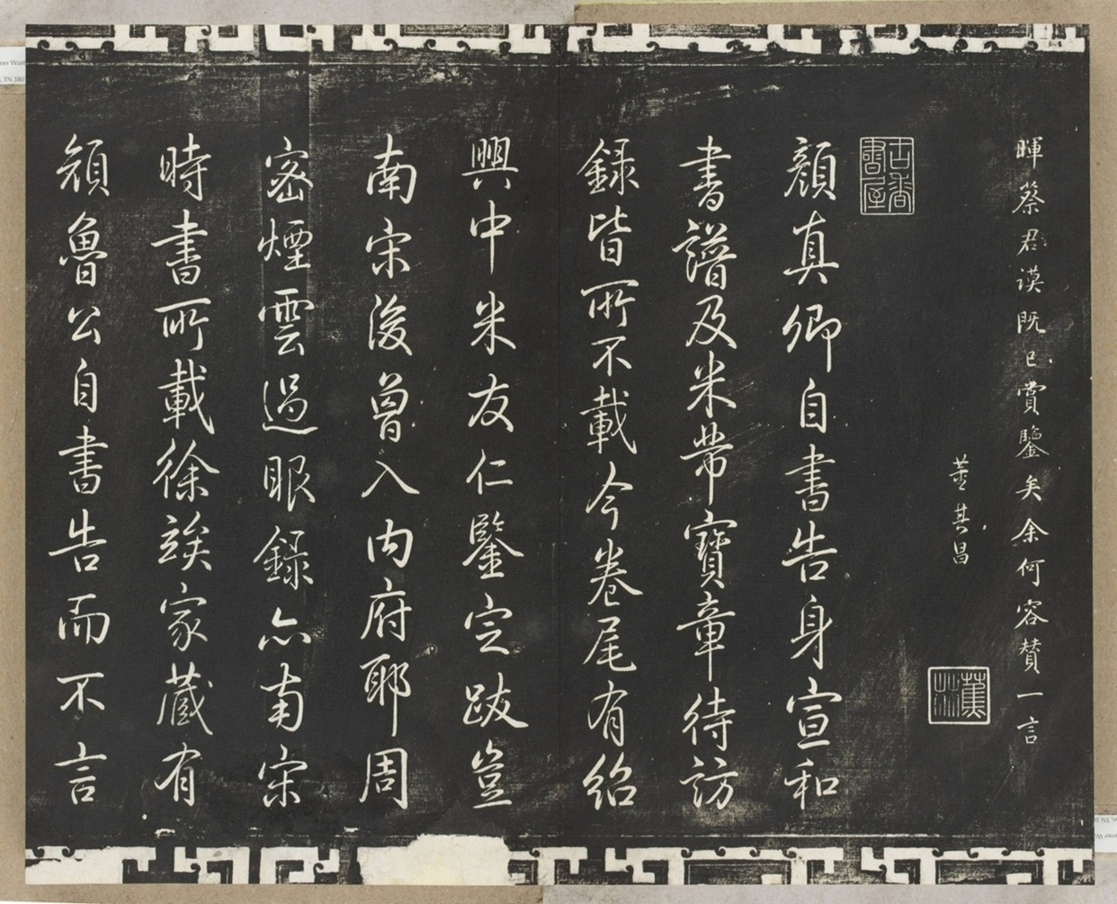 暉蔡君謨既已賞鑒矣余何容賛一言
董其昌
古香書屋
顏真卿自書告身宣和
書譜及米芾寶章待訪
録皆所不載今卷尾有紹
興中米友仁鑒定跋豈
南宋後曾入内府耶周
密煙雲過眼録亦南宋
時書所載徐容齋家蔵有
顔魯公自書告而不言